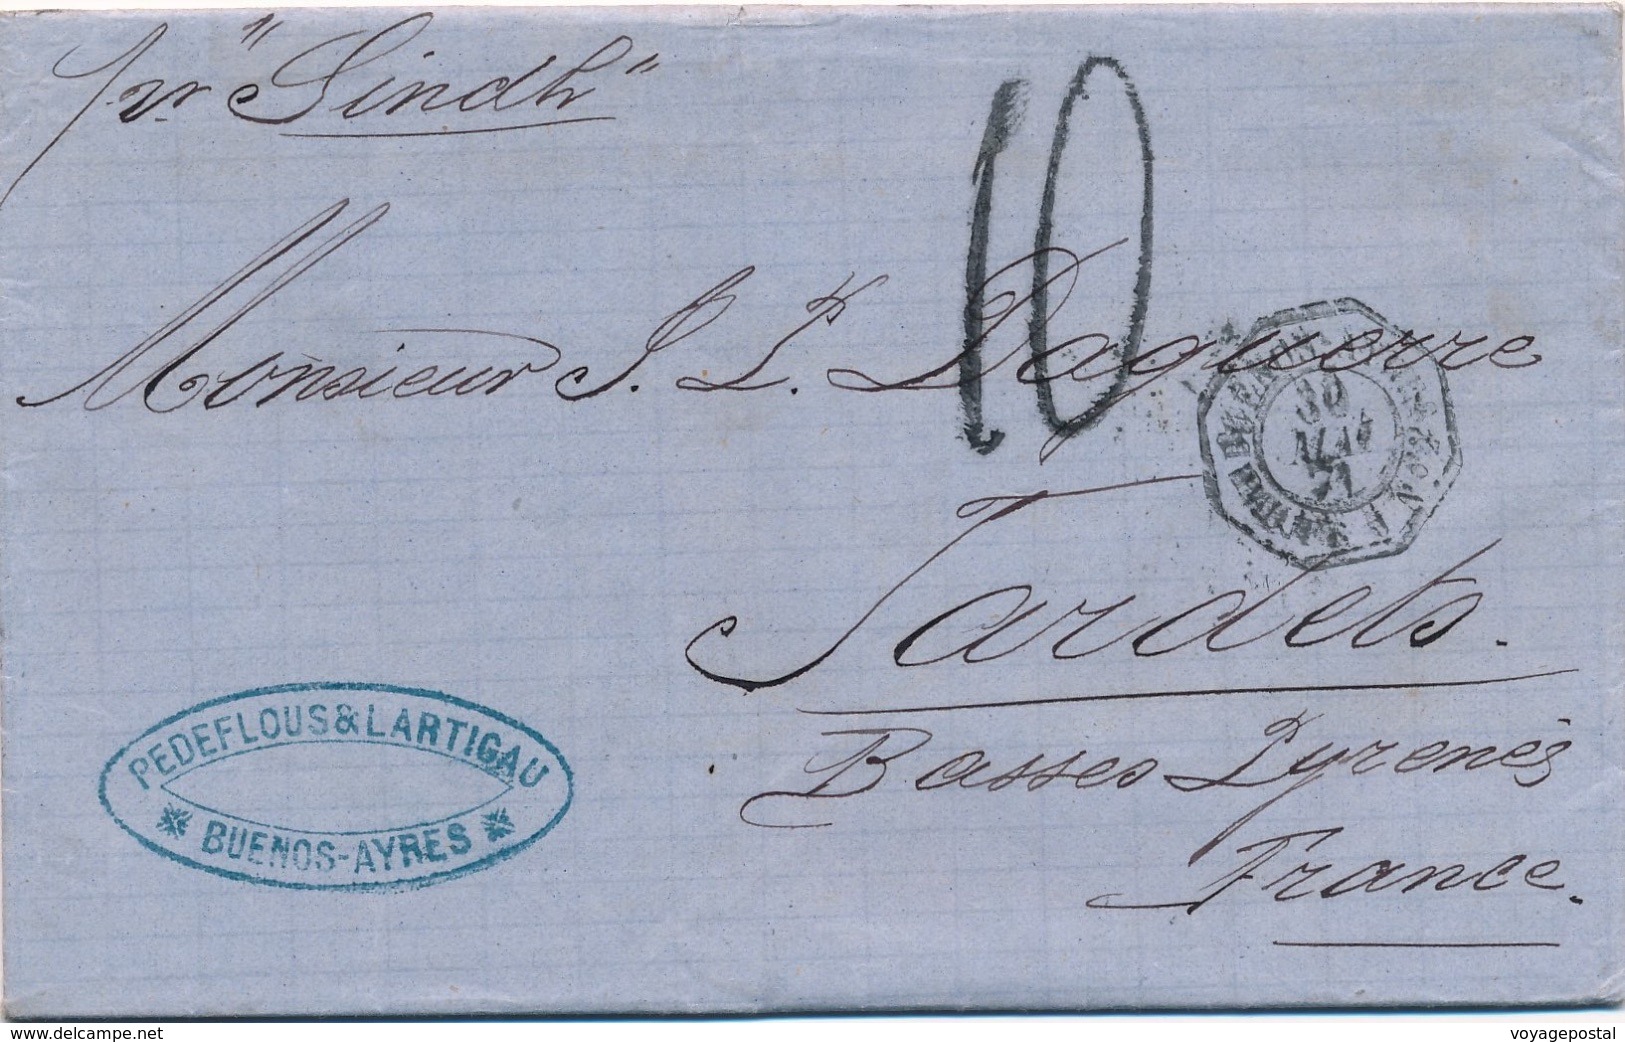 pr "Sindh"
10
Monsieur J. P. Daguerre
BUENOS-AYRES
30
MAI
71
Tardets.
Basses Pyrenés
France.
PEDEFLOUS & LARTIGAU
BUENOS-AYRES
www.delcampe.net
voyagepostal